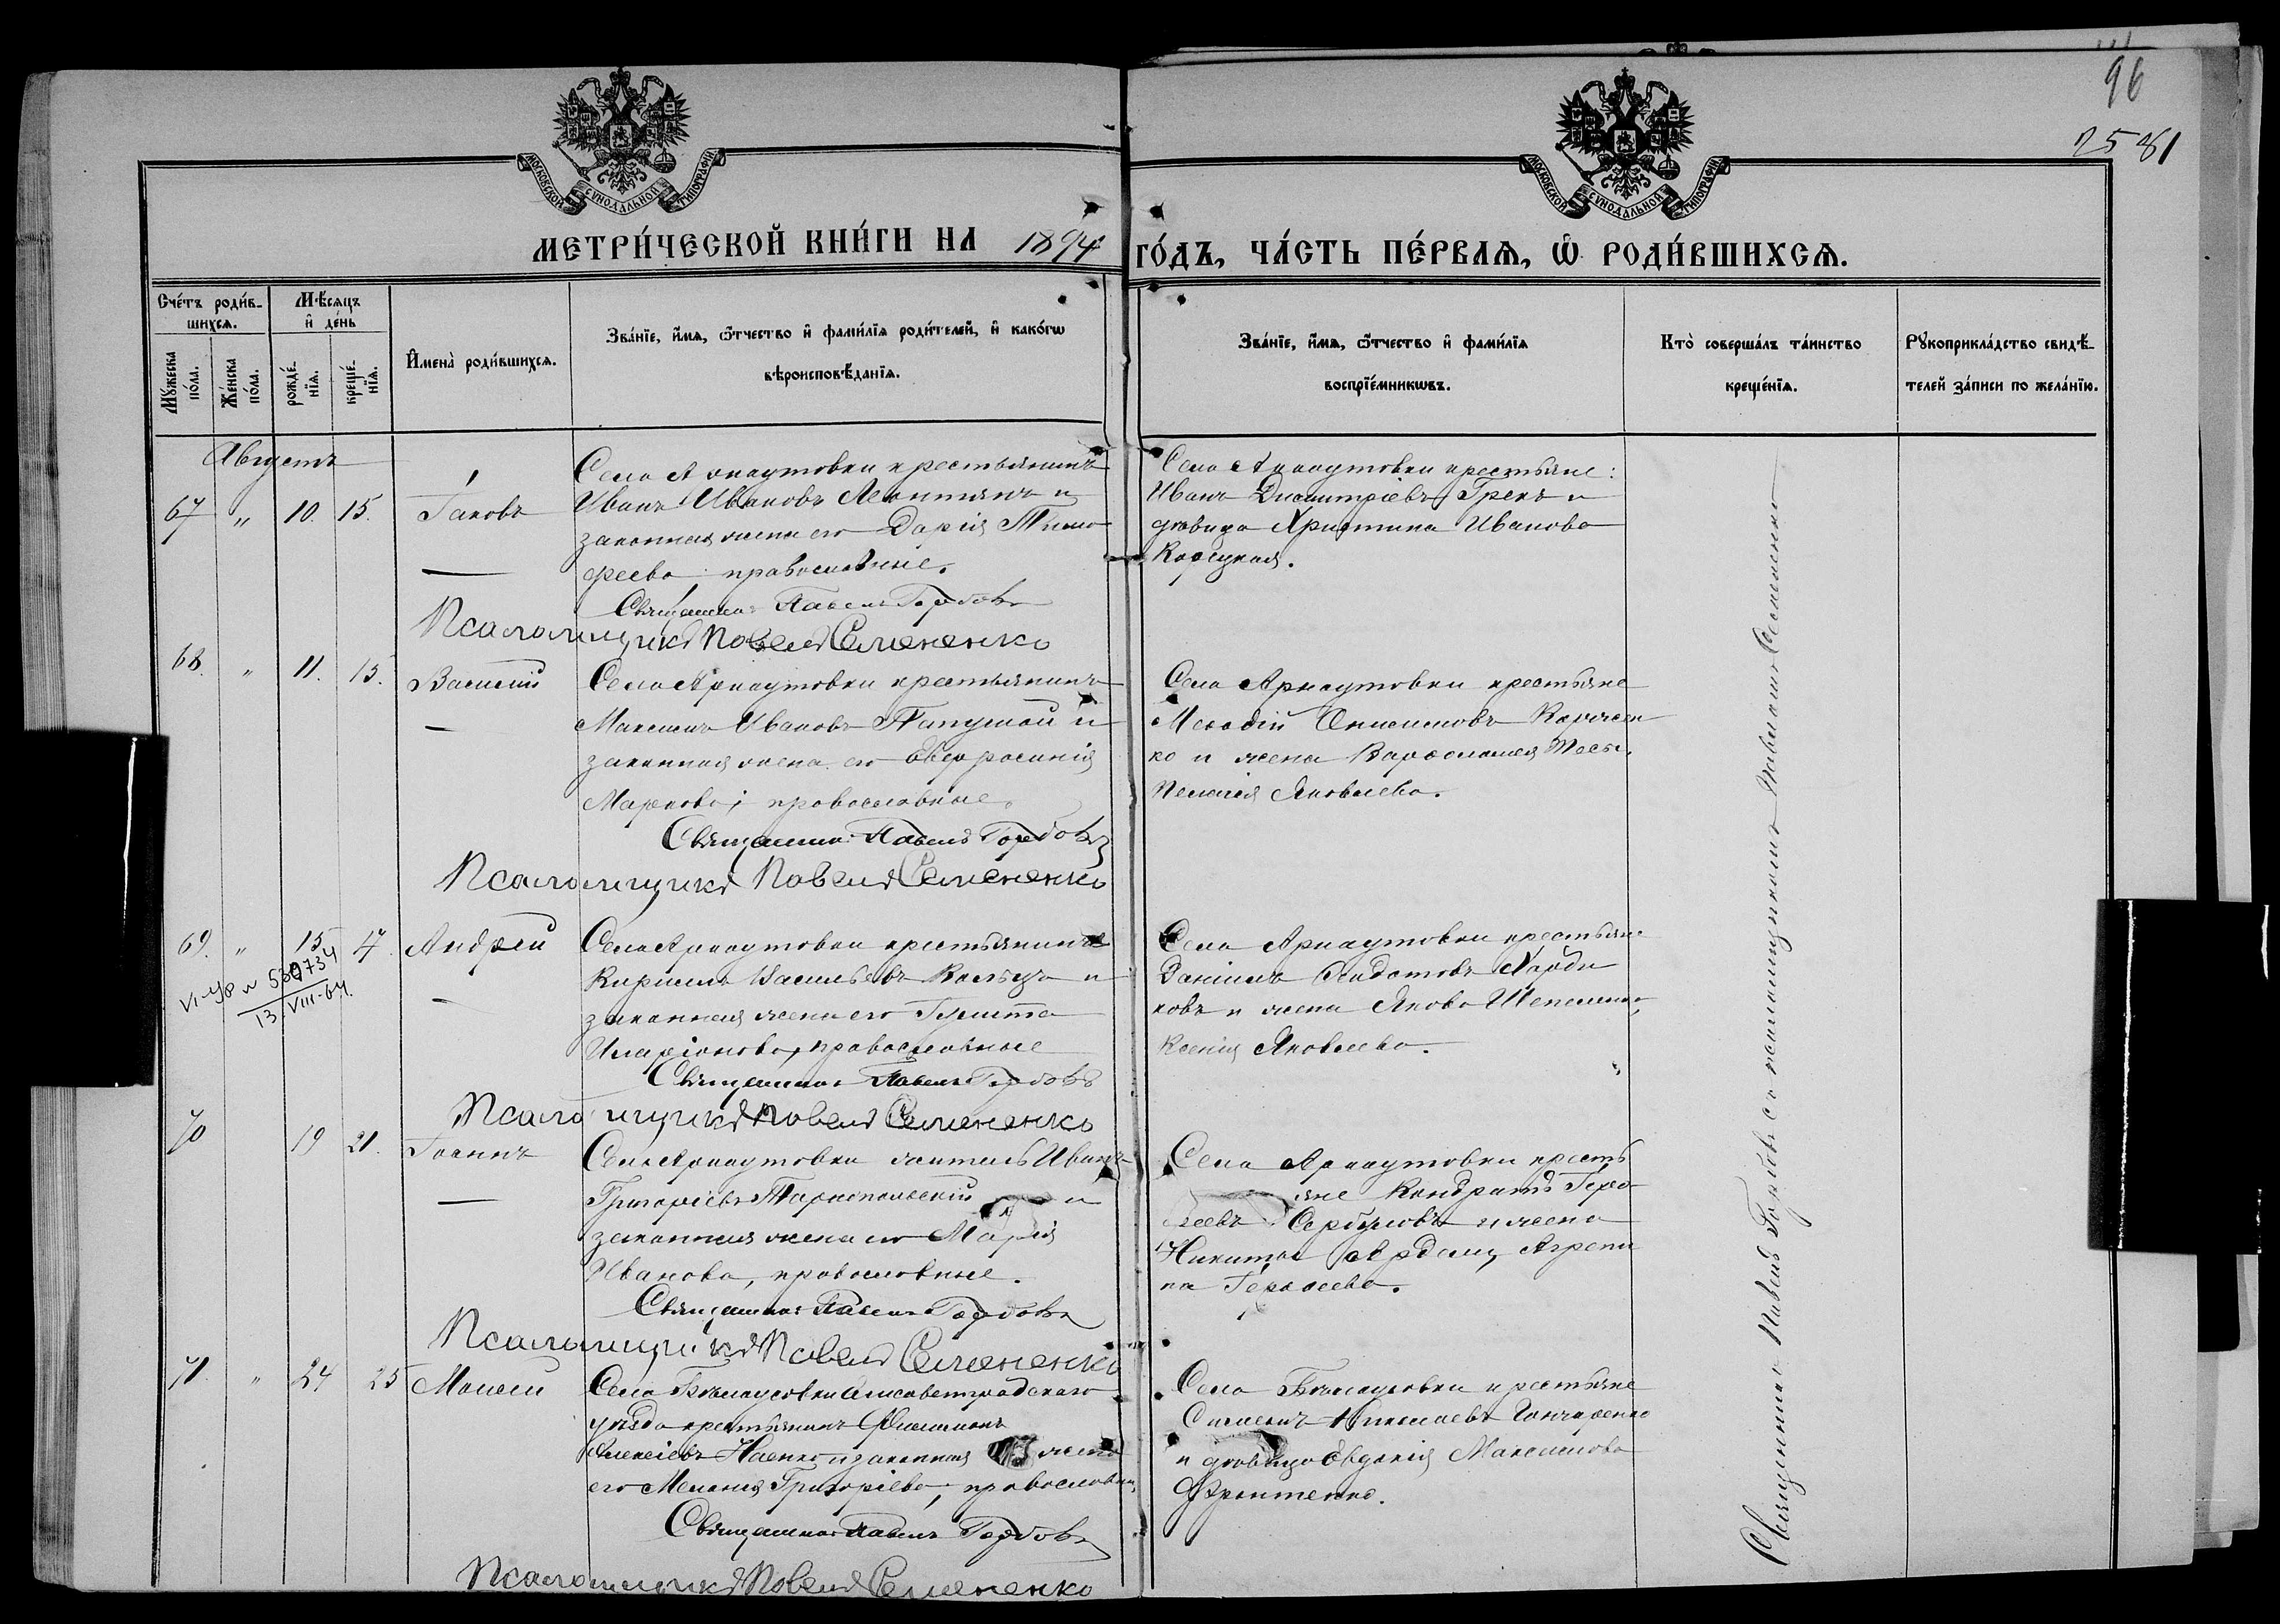 96
2581
МОСКОВСКОЙ СѴНОДАЛЬНОЙ ТИПОГРАФІИ
МОСКОВСКОЙ СѴНОДАЛЬНОЙ ТИПОГРАФІИ
МЕТРИ́ЧЕСКОЙ КНИ́ГИ НА 1894 ГО́ДЪ, ЧА́СТЬ ПЕ́РВАѦ, Ѡ РОДИ́ВШИХСѦ.
Счéтъ роди́в-
шихсѧ.
Мꙋ́жеска по́ла.
Же́нска по́ла.
Мѣ́сѧцъ
и҆ де́нь
рожде́-
нїѧ.
креще́-
нїѧ.
И҆мена̀ роди́вшихсѧ.
Зва́нїе, и҆́мѧ, ѻ҆́тчество и҆ фами́лїѧ роди́телей, и҆ како́гѡ
вѣроисповѣ́данїѧ.
Зва́нїе, и҆́мѧ, ѻ҆́тчество и҆ фами́лїѧ
воспрїе́мникѡвъ.
Кто̀ соверша́лъ та́инство
креще́нїѧ.
Рꙋкоприкла́дство свидѣ́-
телей за́писи по жела́нїю.
Августъ
67 " 10. 15. Іаковъ
Села Арнаутовки крестьянинъ
Иванъ Ивановъ Леонтянъ и
законная жена его Дарія Тимо
феева православные.
Священникъ Павелъ Горбовъ
Псаломщикъ Павелъ Семененко
Села Арнаутовки крестьяне:
Иванъ Димитріевъ Грекъ и
дѣвица Христина Иванова
Корецкая.
68. " 11. 15. Василій
Села Арнаутовки крестьянинъ
Максимъ Ивановъ Папушой и
законная жена его Евфросинія
Маркова; православные.
Священникъ Павелъ Горбовъ
Псаломщикъ Павелъ Семененко
Села Арнаутовки крестьяне
Меѳодій Онисимовъ
ко и жена Варѳоломея
Пелагія Яковлева.
69. " 15 17 Андрей
VI-48 № 530734
13. VIII-64.
Села Арнаутовки крестьянинъ
Кириллъ Васильевъ и
законная жена его
Иларіонова, православные
Священникъ Павелъ Горбовъ
Псаломщикъ Павелъ Семененко
Села Арнаутовки крестьяне
Даніилъ
ковъ и жена Якова
Ксенія Яковлева.
70 19 21. Іоаннъ
Села Арнаутовки житель Иванъ
Григоріевъ Тарнопольскій и
законная жена его Марія
Иванова, православные.
Священникъ Павелъ Горбовъ
Псаломщикъ Павелъ Семененко
Села Арнаутовки кресть
яне Кондратъ Гера-
Сербуловъ и жена
Никиты Ардели, Агрепи
на Герасева.
71. " 24 25 Моисей
Села Елисаветградскаго
уѣзда крестьянинъ Филимонъ
Алексіевъ Наенко и законная жена
его Меланія Григоріева, православные
Священникъ Павелъ Горбовъ
Псаломщикъ Павелъ Семененко
Села крестьяне
Николаевъ Гончаренко
и дѣвица Евдокія Максимова
Священникъ Павелъ Горбовъ съ псаломщикомъ Павломъ Семененко